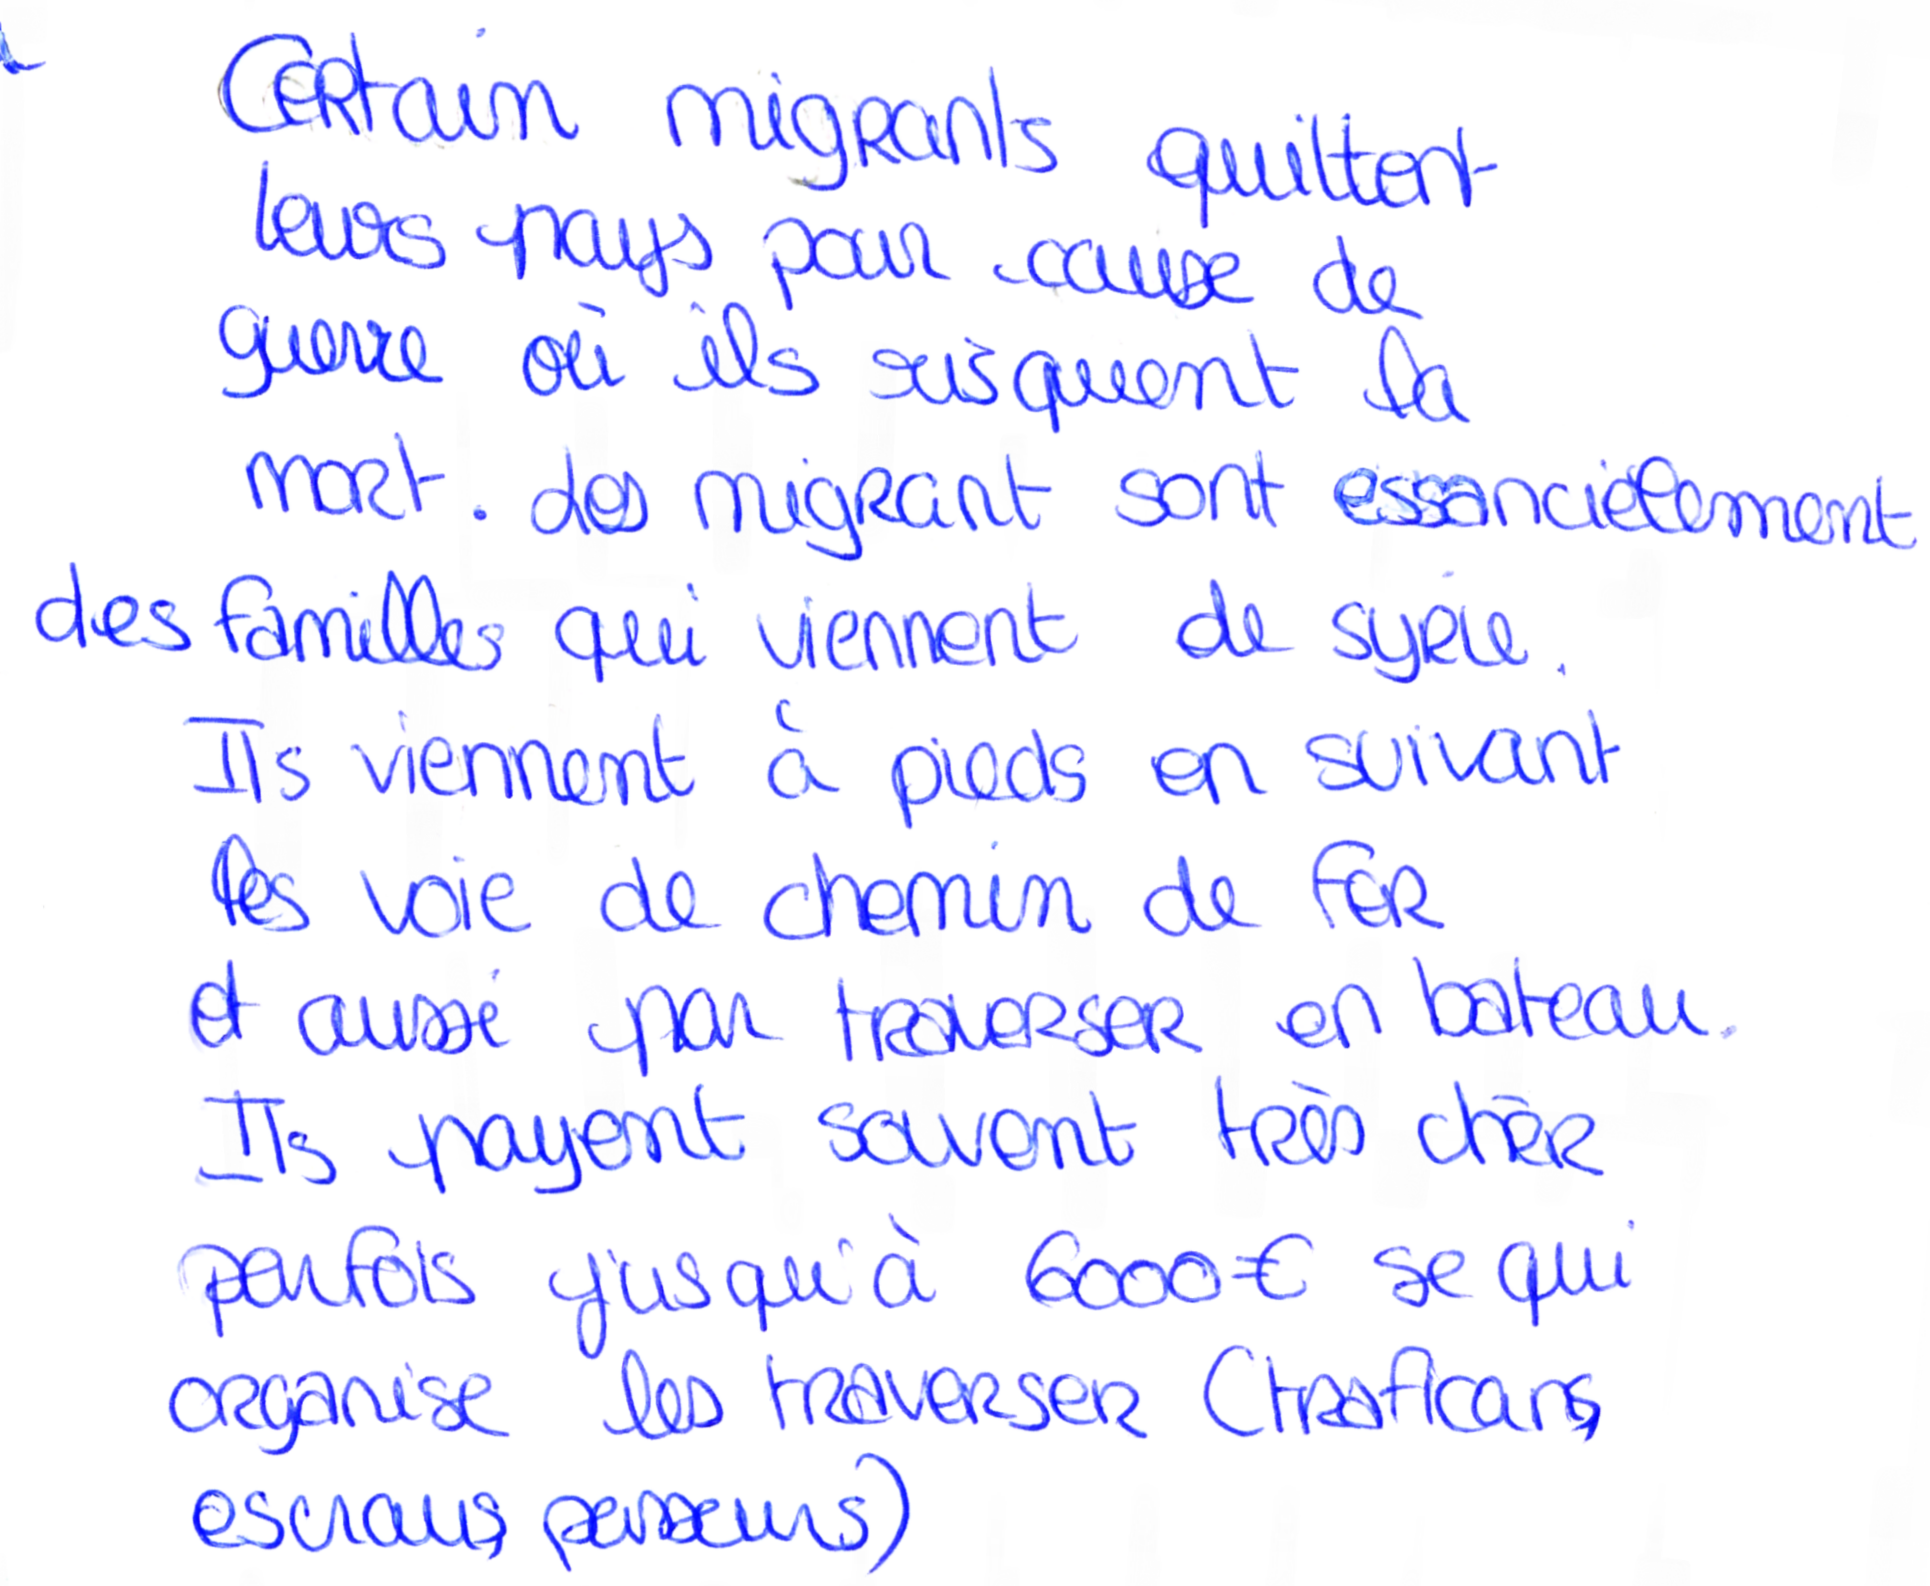 Certain migrants quittent
leurs pays pour cause de
guerre où ils risquent la
mort. Les migrant sont essancielement
des familles qui viennent de syrie.
Ils viennent à pieds en suivant
les voie de chemin de fer
et aussi par traverser en bateau.
Ils payent souvent très chèr
parfois j'usqu'à 6000€ se qui
organise les traverser (traficans,
escraus, passeurs)